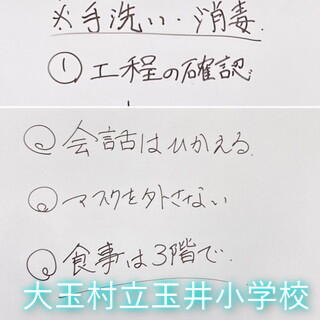 ※手洗い・消毒.
①工程の確認
会話はひかえる.
マスクを外さない
食事は3階で.
大玉村立玉井小学校